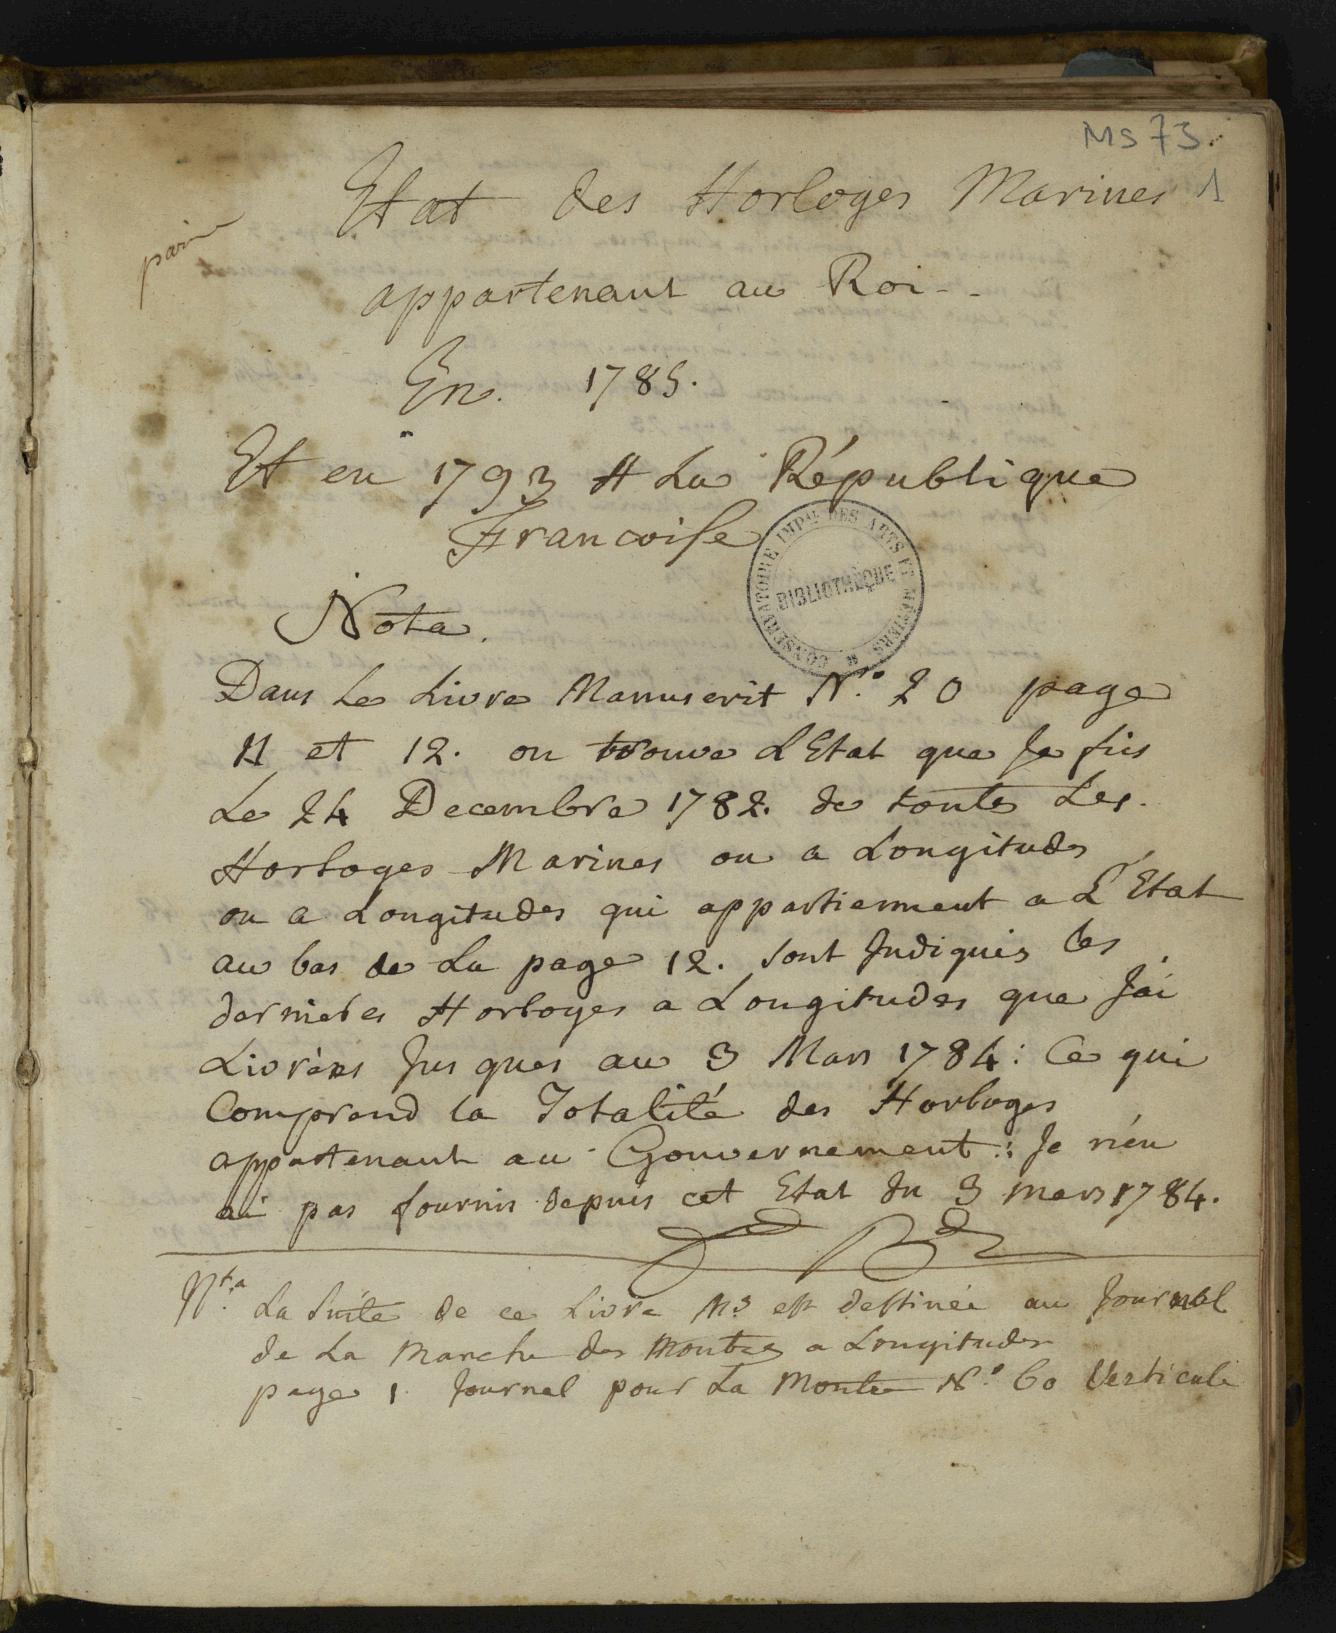 Ms 73.
1
Etat des Horloges Marines
appartenant au Roi--
En. 1785.
Et en 1793 A La République
Francoise
CONSERVATOIRE IMP.AL DES ARTS ET METIERS
BIBLIOTHÈQUE
Nota.
Dans Le Livre Manuscrit N.º 20 page
11 et 12. on trouve L Etat que Je fis
Le 24 Decembre 1782. de toutes Les.
Horloges Marines ou a Longitudes
ou a Longitudes qui appartiennent a L'Etat
au bas de La page 12. sont Indiquées les
dernieres Horloges a Longitudes que J'ai
Livrées Jusques au 3 Mars 1784: Ce qui
Comprend la Totalité des Horloges
appartenant au Gouvernement: Je n'en
ai pas fournis depuis cet Etat du 3 mars 1784.
N.ta La Suite de ce Livre MS est destinée au Journal
de La Marche des Montres a Longitudes
page 1. Journal pour La Montre N.º 60 Verticale